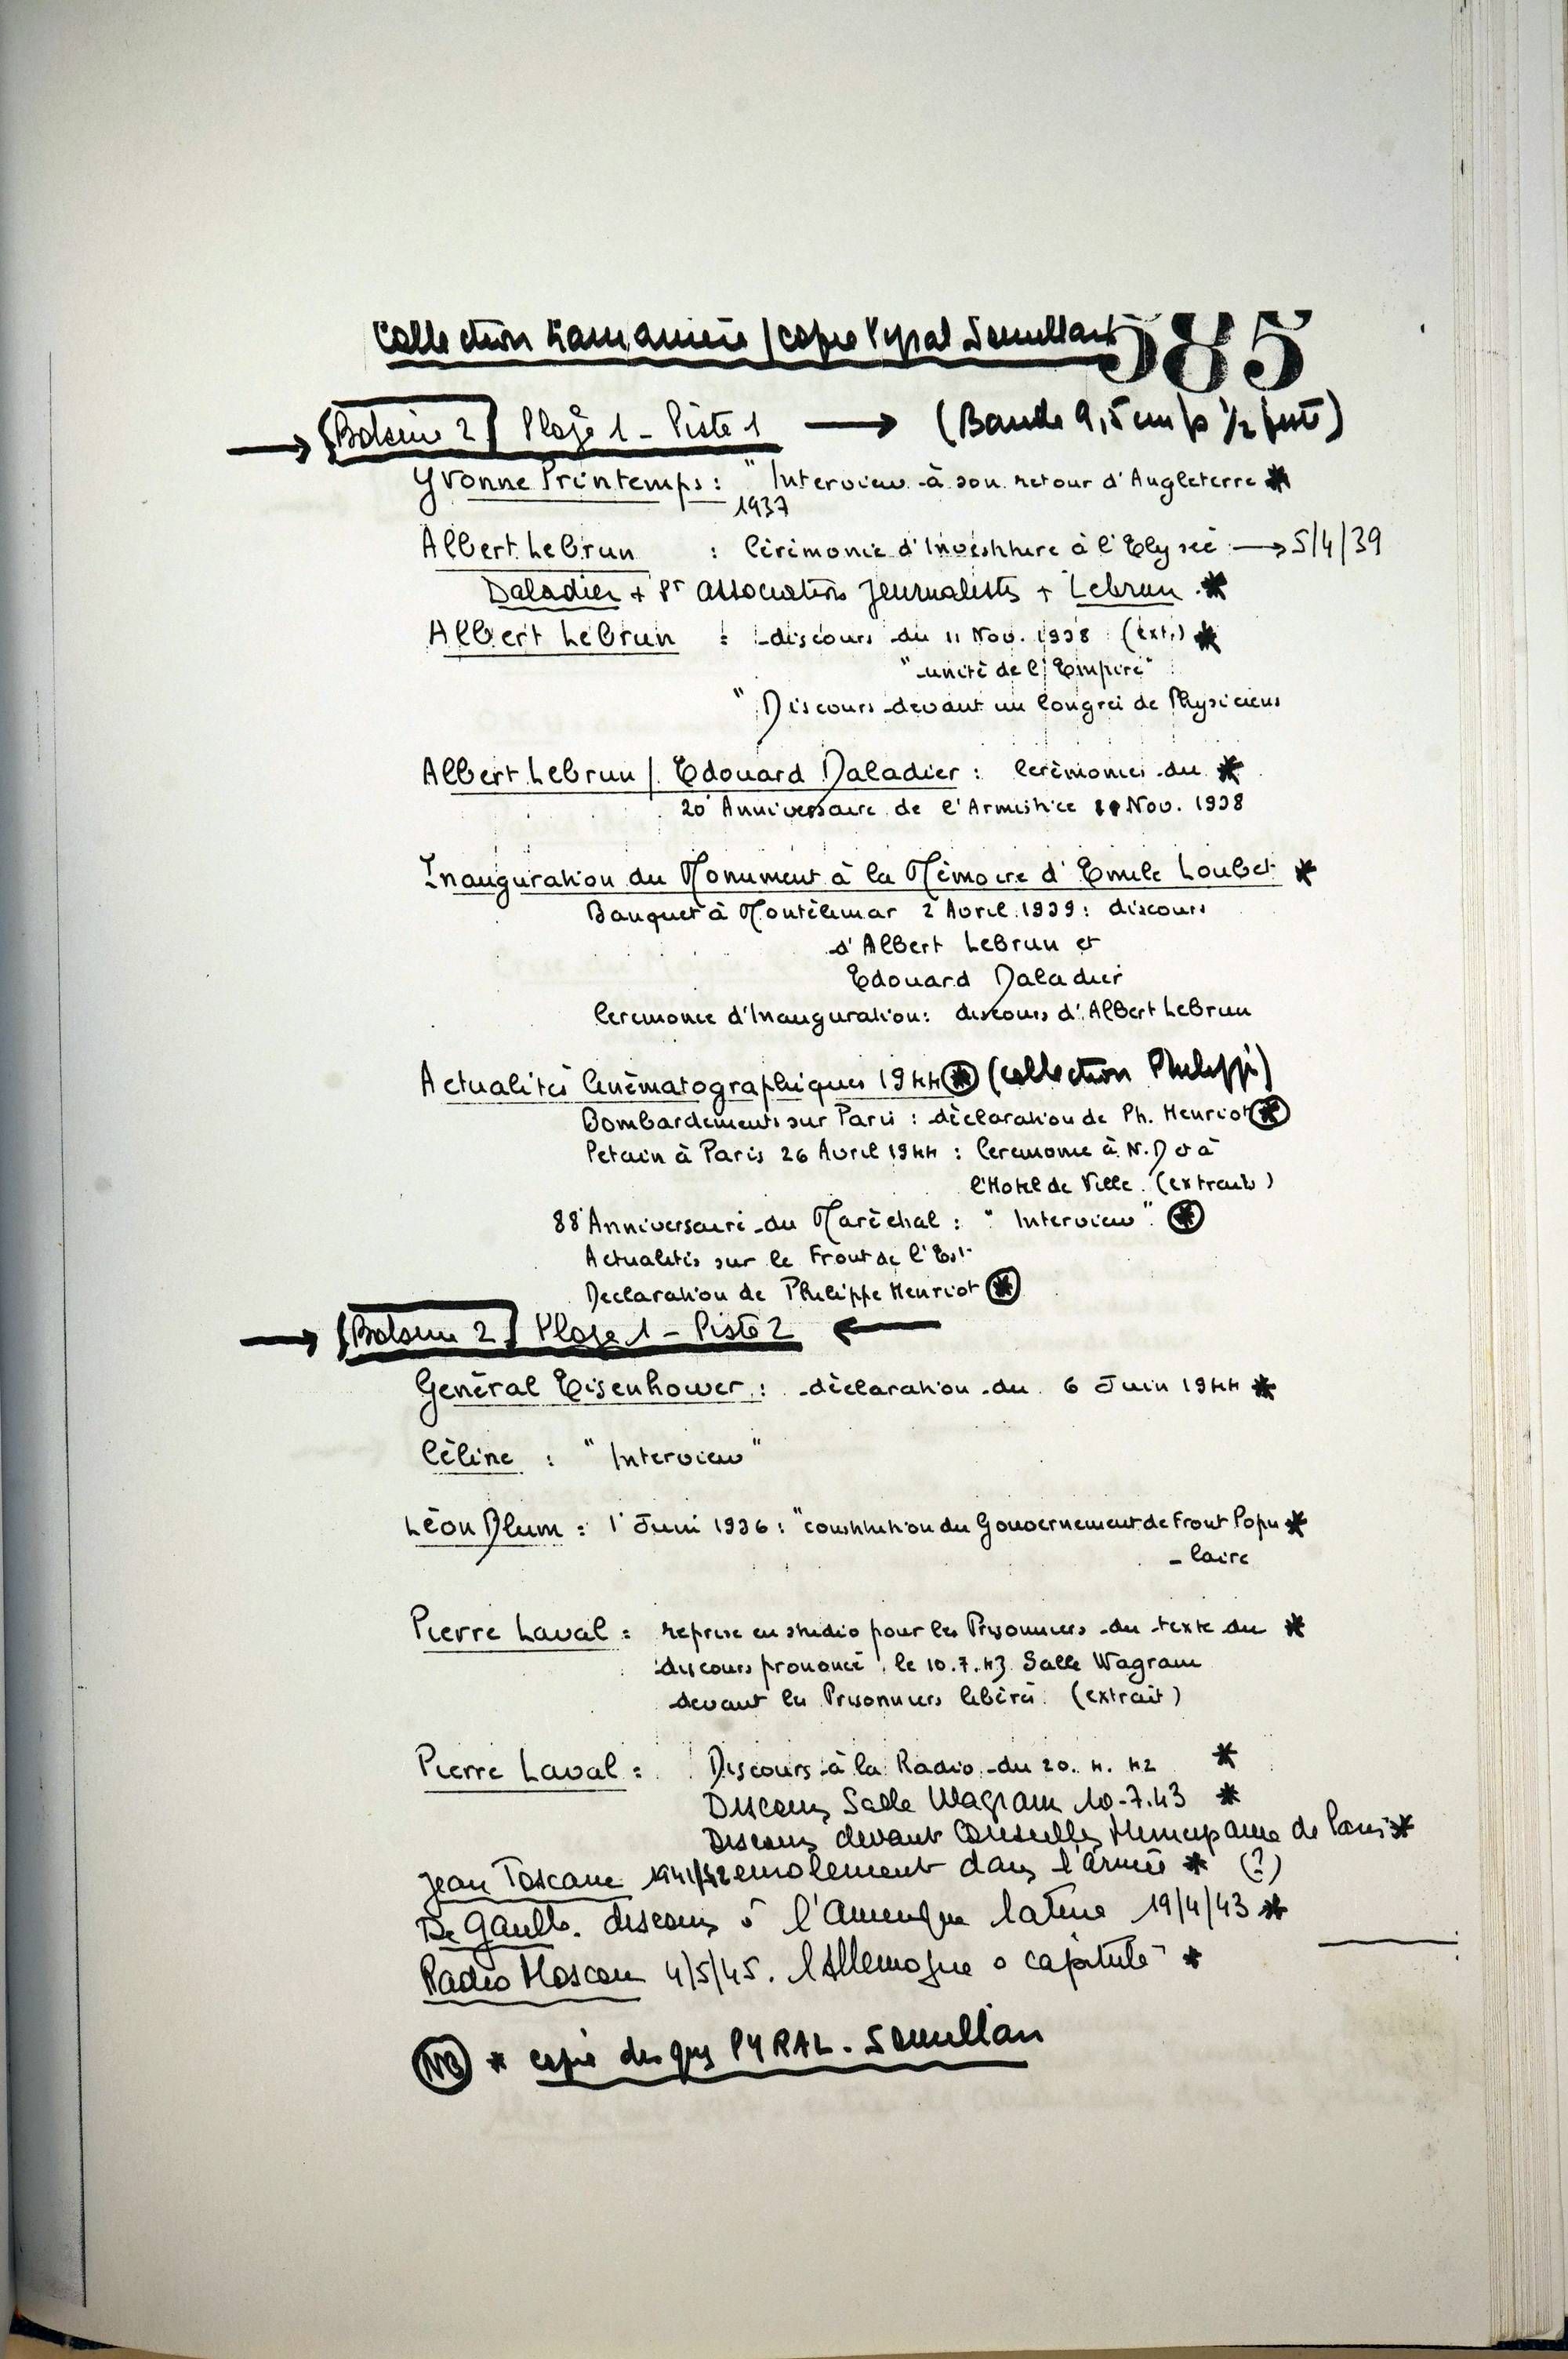 Collection / copie Pyral Semullant 585
→ [Bobine 2] Plage 1 - Piste 1 → (Bande 9,5 cm/s ½ piste)
Yvonne Printemps : " Interview à son retour d'Angleterre *
1937
Albert Lebrun : Cérémonie d'Investiture à l'Elysée → 5/4/39
Daladier + Pr association Journalistes + Lebrun *
Albert Lebrun : discours du 11 Nov. 1938 (ext.) *
"unité de l'Empire"
" Discours devant un Congrès de Physiciens
Albert Lebrun / Edouard Daladier : Cérémonies du *
20 Anniversaire de l'Armistice Nov. 1938
Inauguration du Monument à la Mémoire d'Emile Loubet *
Banquet à Montélimar 2 Avril 1939 : discours
d'Albert Lebrun et
Edouard Daladier
Ceremonie d'Inauguration : discours d'Albert Lebrun
Actualités Cinématographiques 1944 * (collection Philippi)
Bombardements sur Paris : déclaration de Ph. Henriot *
Petain à Paris 26 Avril 1944 : Ceremonie à N.D et à
l'Hotel de Ville (extraits)
88 Anniversaire du Maréchal : " Interview " *
Actualités sur le Front de l'Est
Declaration de Philippe Henriot *
→ [Bobine 2] Plage 1 - Piste 2 ←
Général Eisenhower : déclaration du 6 Juin 1944 *
Céline : " Interview "
Léon Blum : 1 Juin 1936 : "constitution du Gouvernement de Front Popu *
- laire
Pierre Laval : reprise en studio pour les Prisonniers du texte du *
discours prononcé le 10.7.43 Salle Wagram
devant les Prisonniers libérés (extrait)
Pierre Laval : Discours à la Radio du 20. 4. 42 *
Discours Salle Wagram 10-7.43 *
Discours devant Conseillers Municipaux de Paris *
Jean Toscane 1941/42 enrolement dans l'armée * (?)
De Gaulle. discours à l'Amerique latine 19/4/43 *
Radio Moscou 4/5/45. l'Allemagne a capitulé *
NB * copie disques PYRAL. Semullan